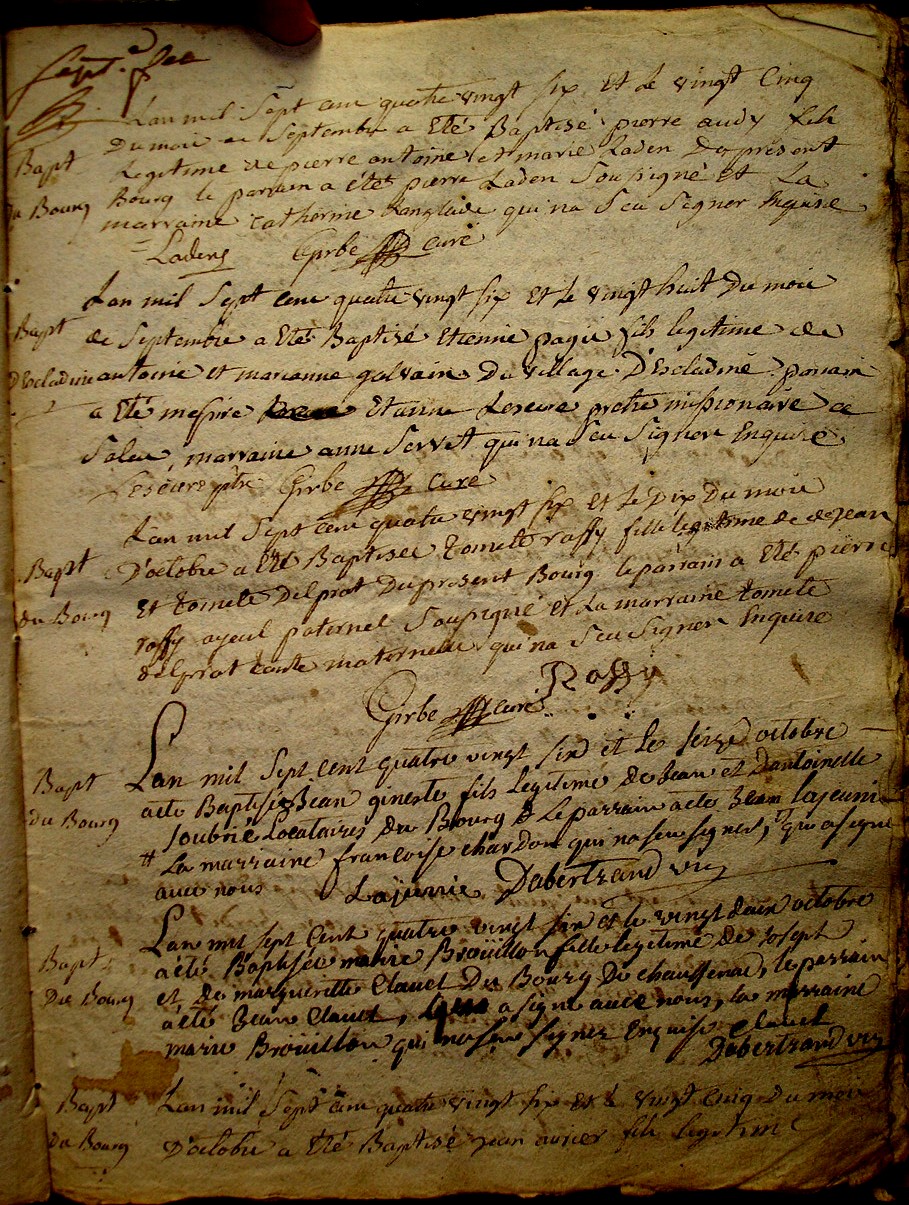 Lan mil Sept cen quatre vingt six et le vingt cinq
Bapt du Bourg
Du moi de Septembre a Eté Baptisé pierre audy fils
Legitime de pierre antoine et marie Laden du présent
Bourg le parrain a éte pierre Laden Soussigné et La
marraine catherine Langlade qui na Seu Signer Enquise
Ladens Girbe curé
Bapt D'Escladine
Lan mil Sept cen quatre vingt six Et le vingt huit Du moi
de Septembre a Eté Baptisé Etienne pagis fils legitime de
antoine et marianne galvain Du village D'Escladine parrain
a Eté messire Etienne Leseure pretre missionaire de
Salers, marraine anne Servet qui na Seu Signer Enquise
Leseure ptre Girbe curé
Bapt du Bourg
Lan mil Sept cen quatre vingt six Et le Dix Du moi
D'octobre a Eté Baptisée tomete raffy fille legitime de de Jean
Et tomete Delprat Du présent Bourg le parrain a Eté pierre
raffy ayeul paternel Soussigné et La marraine tomete
delprat tante maternelle qui na Seu Signer Enquise
Raffy
Girbe curé
Bapt du Bourg
Lan mil Sept Cent quatre vingt six et le seize octobre
a ete Baptisé Jean gineste fils Legitime de Jean et Dantoinette
Soubrie Locataires du Bourg Le parrain a ete Jean lajeunie
La marraine francoise chardon qui na seu signer, qui a signe
avec nous Lajunie Dabertrand vic
Bapt Du Bourg
Lan mil sept Cent quatre vingt six et le vingt deux octobre
a été Baptisée marie Broüillon fille legitime de Joseph
et de marguerite Clauet Du Bourg De chaussenac, le parrain
a été Jean Clauet, a signe avec nous, la marraine
marie Broüillon qui na seu signer Enquise Clauet
Dabertrand vic
Bapt Du Bourg
Lan mil Sept cen quatre vingt six et le vingt cinq Du moi
D'octobre a Eté Baptisé Jean fils legitime